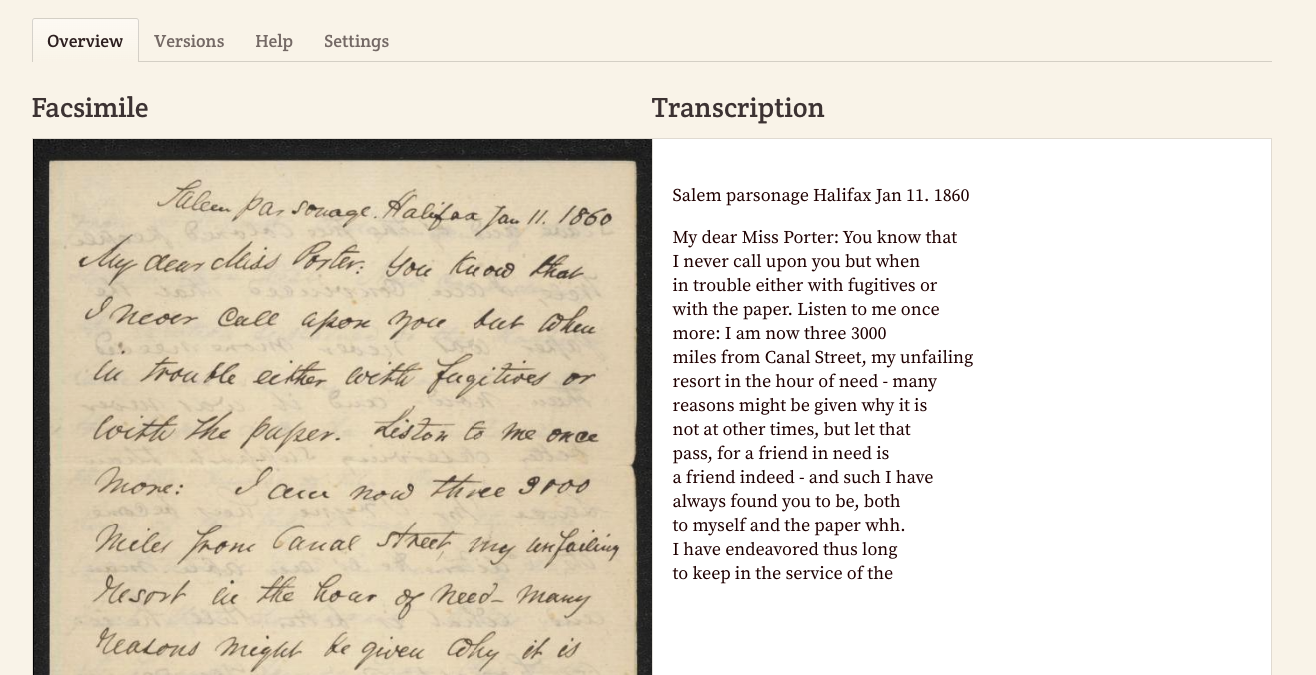 Overview
Versions
Help
Settings
Facsimile
Transcription
Salem parsonage. Halifax Jan 11. 1860
My dear Miss Porter: You know that
I never call upon you but when
in trouble either with fugitives or
with the paper. Listen to me once
more: I am now three 3000
miles from Canal Street, my unfailing
resort in the hour of need - many
reasons might be given why it is
Salem parsonage Halifax Jan 11. 1860
My dear Miss Porter: You know that
I never call upon you but when
in trouble either with fugitives or
with the paper. Listen to me once
more: I am now three 3000
miles from Canal Street, my unfailing
resort in the hour of need - many
reasons might be given why it is
not at other times, but let that
pass, for a friend in need is
a friend indeed - and such I have
always found you to be, both
to myself and the paper whh.
I have endeavored thus long
to keep in the service of the